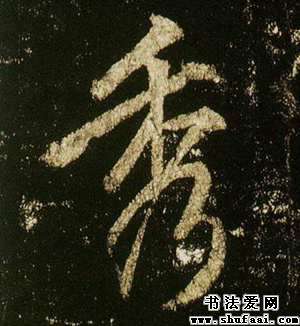 秀
书法爱网
www.shufaai.com